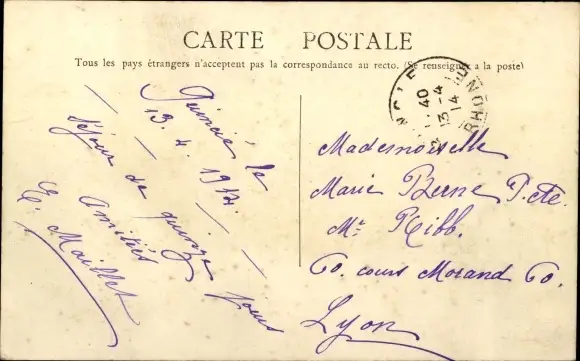 CARTE POSTALE
Tous les pays étrangers n'acceptent pas la correspondance au recto. (Se renseigner a la poste)
Quincié le
13. 4. 1914.
Séjour de quinze jours
Amitiés
E. Maillet
RHONE
40
13-4
14
Mademoiselle
Marie Berne P.cte.
Mr Ribb.
60. cours Morand 60.
Lyon